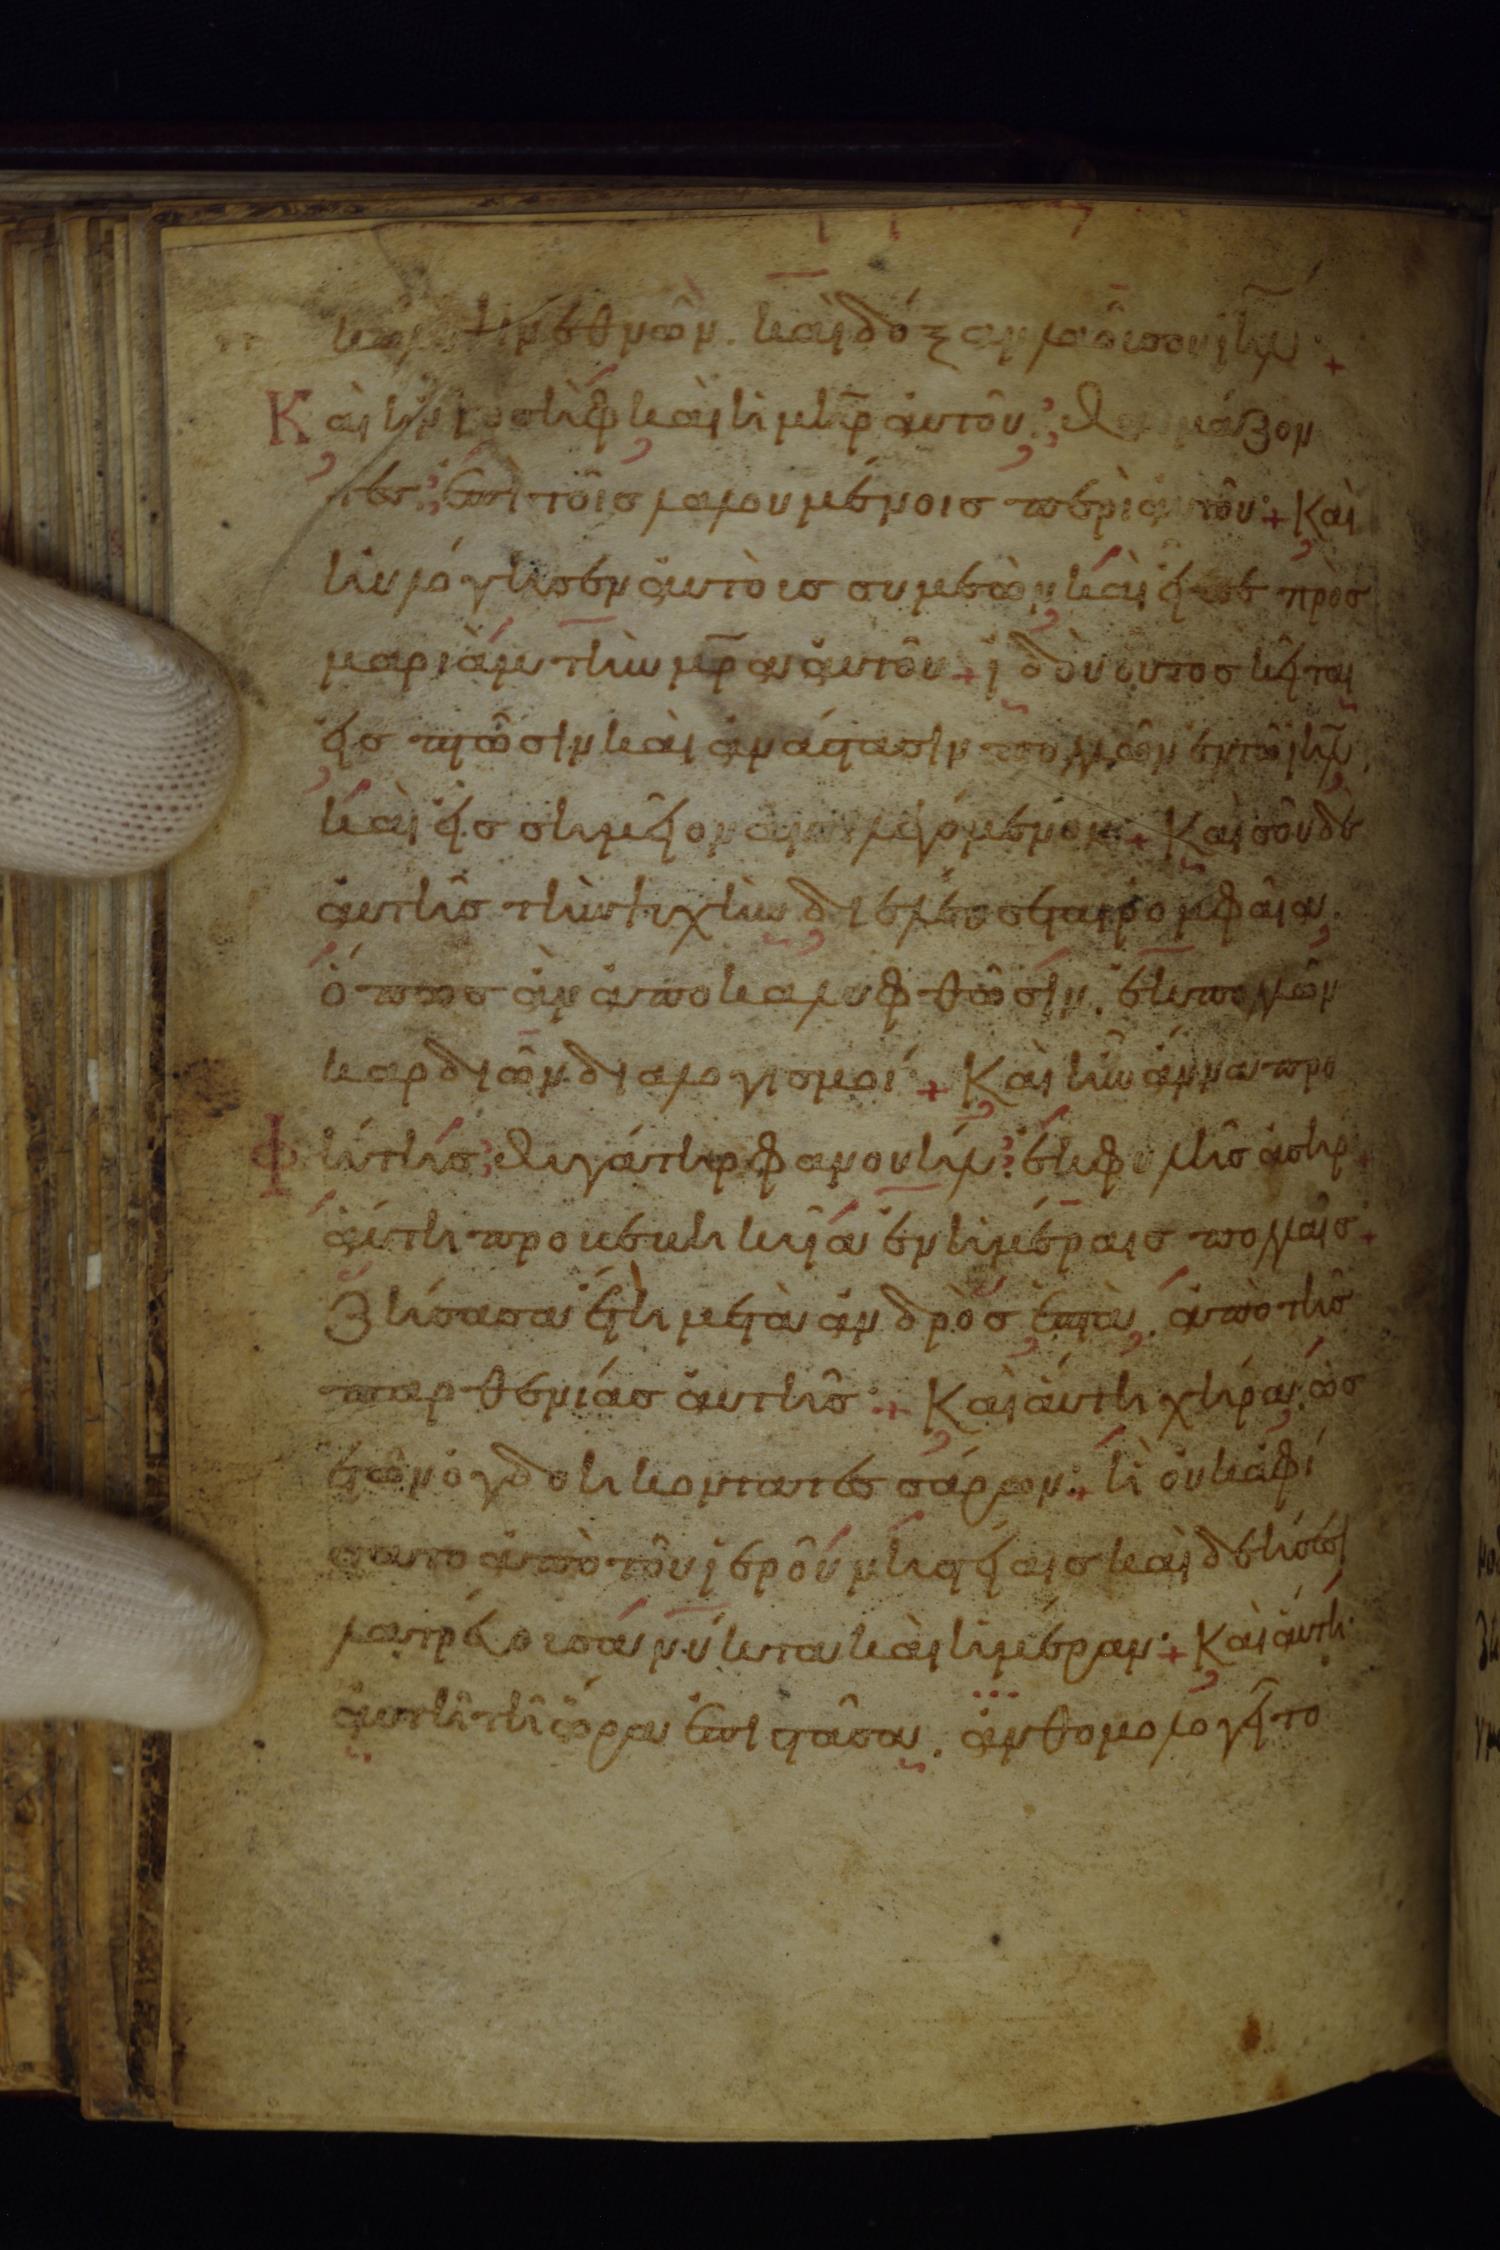 καλυψιν εθνῶν. καὶ δόξαν λαοῦ σου ιη̅λ +
Καὶ ἦν ἰωσὴφ καὶ ἡ μη̅ρ αὐτοῦ, θαυμάζον
τες, ἐπὶ τοῖς λαλουμένοις περὶ αὐτοῦ + Καὶ
ηὐλόγησεν αὐτοὺς συμεὼν καὶ εἶπε πρὸς
μαριὰμ τὴν μρ̅α αὐτοῦ + ἰδοὺ οὗτος κεῖται
εἰς πτῶσιν καὶ ἀνάστασιν πολλῶν ἐν τῶ ιη̅λ,
καὶ εἰς σημεῖον ἀντιλεγόμενον + Καὶ σοῦ δὲ
αὐτῆς τὴν ψυχὴν διελεύσεται ρομφαία,
ὅπως ἂν ἀποκαλυφθῶσιν, ἐκ πολλῶν
καρδιῶν διαλογισμοί + Καὶ ἦν ἄννα προ
φῆτης, θυγάτηρ φανουήλ, ἐκ φυλῆς ἀσήρ +
αὕτη προκεκηκυῖα ἐν ἡμέραις πολλαῖς +
Ζήσασα ἔτη μετὰ ἀνδρὸς ἑπτὰ, ἀπὸ τῆς
παρθενίας αὐτῆς + Καὶ αὐτὴ χήρα, ὡς
ἐτῶν ὀγδοηκοντατεσσάρων + ἣ οὐκ ἀφί
στατο ἀπὸ τοῦ ἱεροῦ νηστείαις καὶ δεήσεσι
λατρεύουσα νύκτα καὶ ἡμέραν + Καὶ αὐτὴ
αὐτῆ τῆ ὥρα ἐπιστᾶσα, ἀνθομολογεῖτο